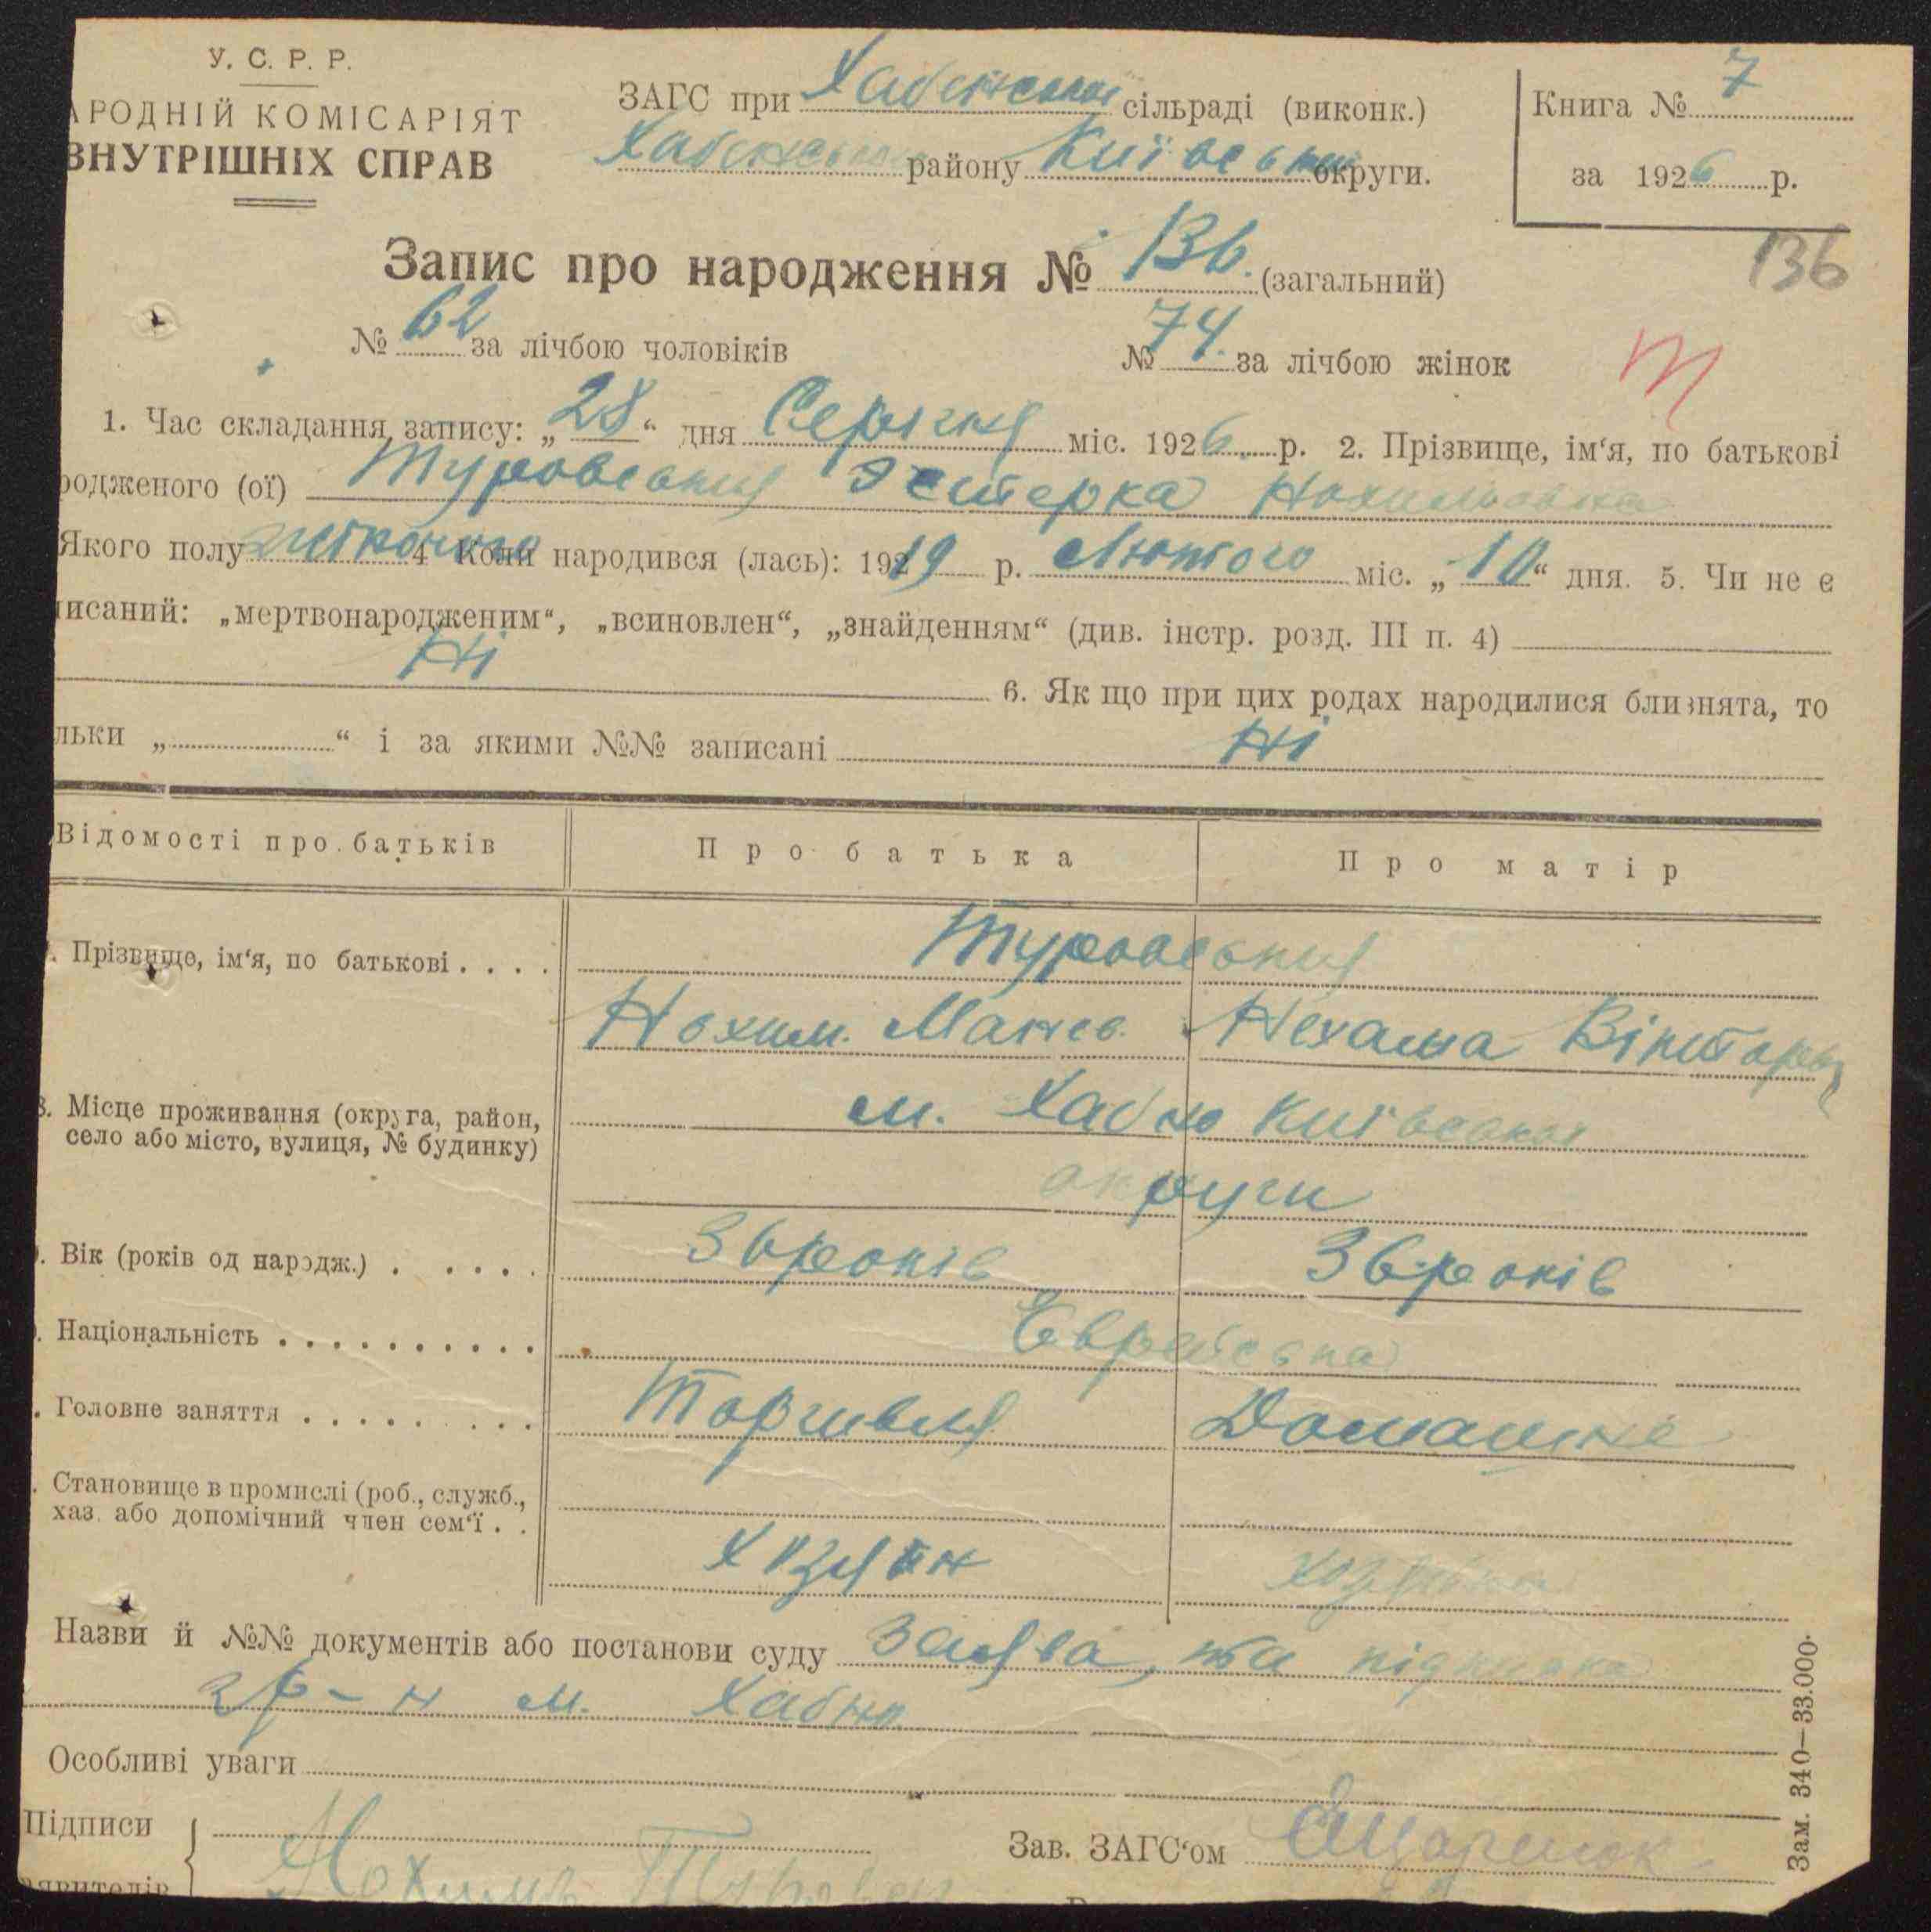 У. С. Р. Р.
АРОДНІЙ КОМІСАРІЯТ
ВНУТРІШНІХ СПРАВ
ЗАГС при Хабенській сільраді (виконк.)
Хабенського району Київської округи.
Книга № 7
за 1926 р.
Запис про народження № 136. (загальний)
136
№ 62 за лічбою чоловіків
№ 74. за лічбою жінок
1. Час складання запису: „28“ дня Серпня міс. 1926 р. 2. Прізвище, ім‘я, по батькові
родженого (ої) Туровська Эстерка Нохимовна
Якого полу жіночого 4 Коли народився (лась): 1919 р. Лютого міс. „10“ дня. 5. Чи не є
писаний: „мертвонародженим“, „всиновлен“, „знайденням“ (див. інстр. розд. III п. 4)
Ні
6. Як що при цих родах народилися близнята, то
льки „ “ і за якими №№ записані Ні
Відомості про батьків
Про батька
Про матір
Прізвище, ім‘я, по батькові . . . .
Туровські
Нохим. Манев.
Нехама
8. Місце проживання (округа, район,
село або місто, вулиця, № будинку)
м. Хабно Київської
округи
Вік (років од народж.) . . . . .
36 років
36 років
Національність . . . . . . . . . .
Єврейська
Головне заняття . . . . . . . . .
Торгивля
Домашнє
Становище в промислі (роб., служб.,
хаз. або допомічний член сем‘ї . .
Хазяїн
Назви й №№ документів або постанови суду Заява, та підписка
гр-н м. Хабна
Особливі уваги
Підписи
аявителів
Нохим
Зав. ЗАГС‘ом
Зам. 340—33.000.